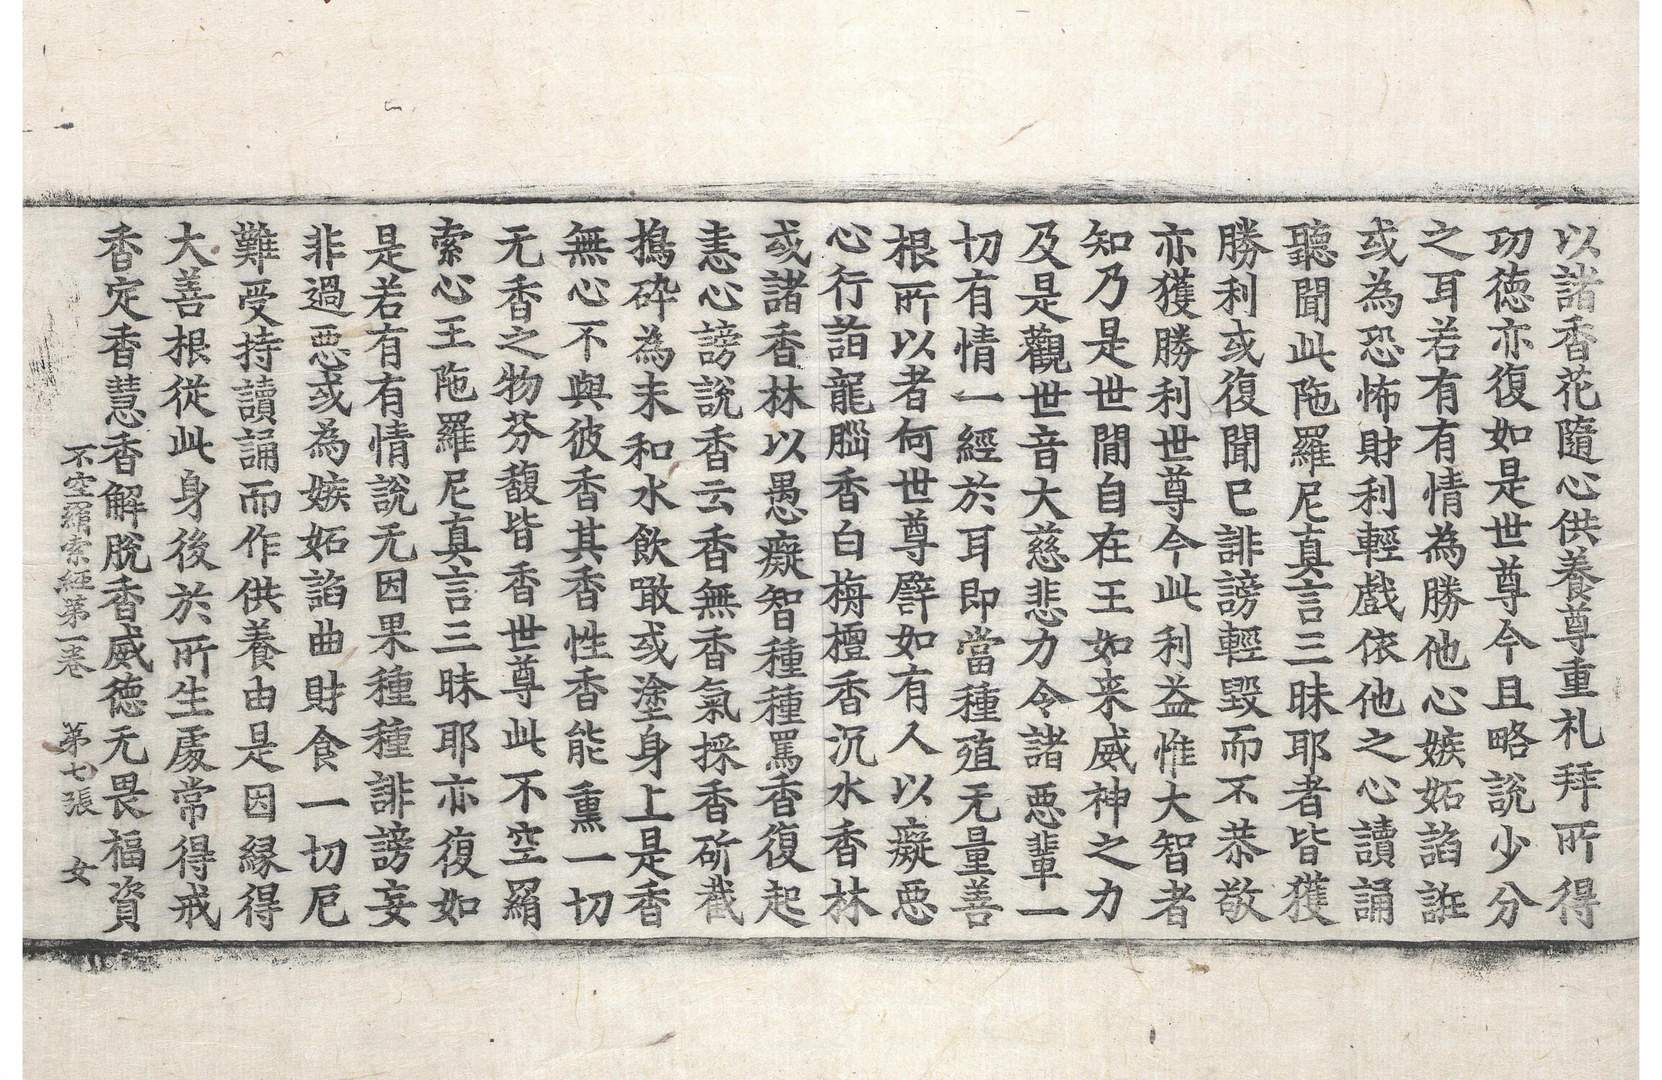 以諸香花隨心供養尊重礼拜所得
功德亦復如是世尊今且略說少分
之耳若有有情為勝他心嫉妬諂誑
或為恐怖財利輕戲依他之心讀誦
聽聞此陁羅尼真言三昧耶者皆獲
勝利或復聞已誹謗輕毀而不恭敬
亦獲勝利世尊今此利益惟大智者
知乃是世間自在王如来威神之力
及是觀世音大慈悲力令諸惡輩一
切有情一經於耳即當種殖无量善
根所以者何世尊譬如有人以癡惡
心行詣龍腦香白栴檀香沉水香林
或諸香林以愚癡智種種罵香復起
恚心謗說香云香無香氣採香斫截
擣碎為末和水飲噉或塗身上是香
無心不與彼香其香性香能熏一切
无香之物芬馥皆香世尊此不空羂
索心王陁羅尼真言三昧耶亦復如
是若有有情說无因果種種誹謗妄
非過惡或為嫉妬諂曲財食一切厄
難受持讀誦而作供養由是因縁得
大善根從此身後於所生處常得戒
香定香慧香解脫香威德无畏福資
不空羂索經第一卷　第七張　女